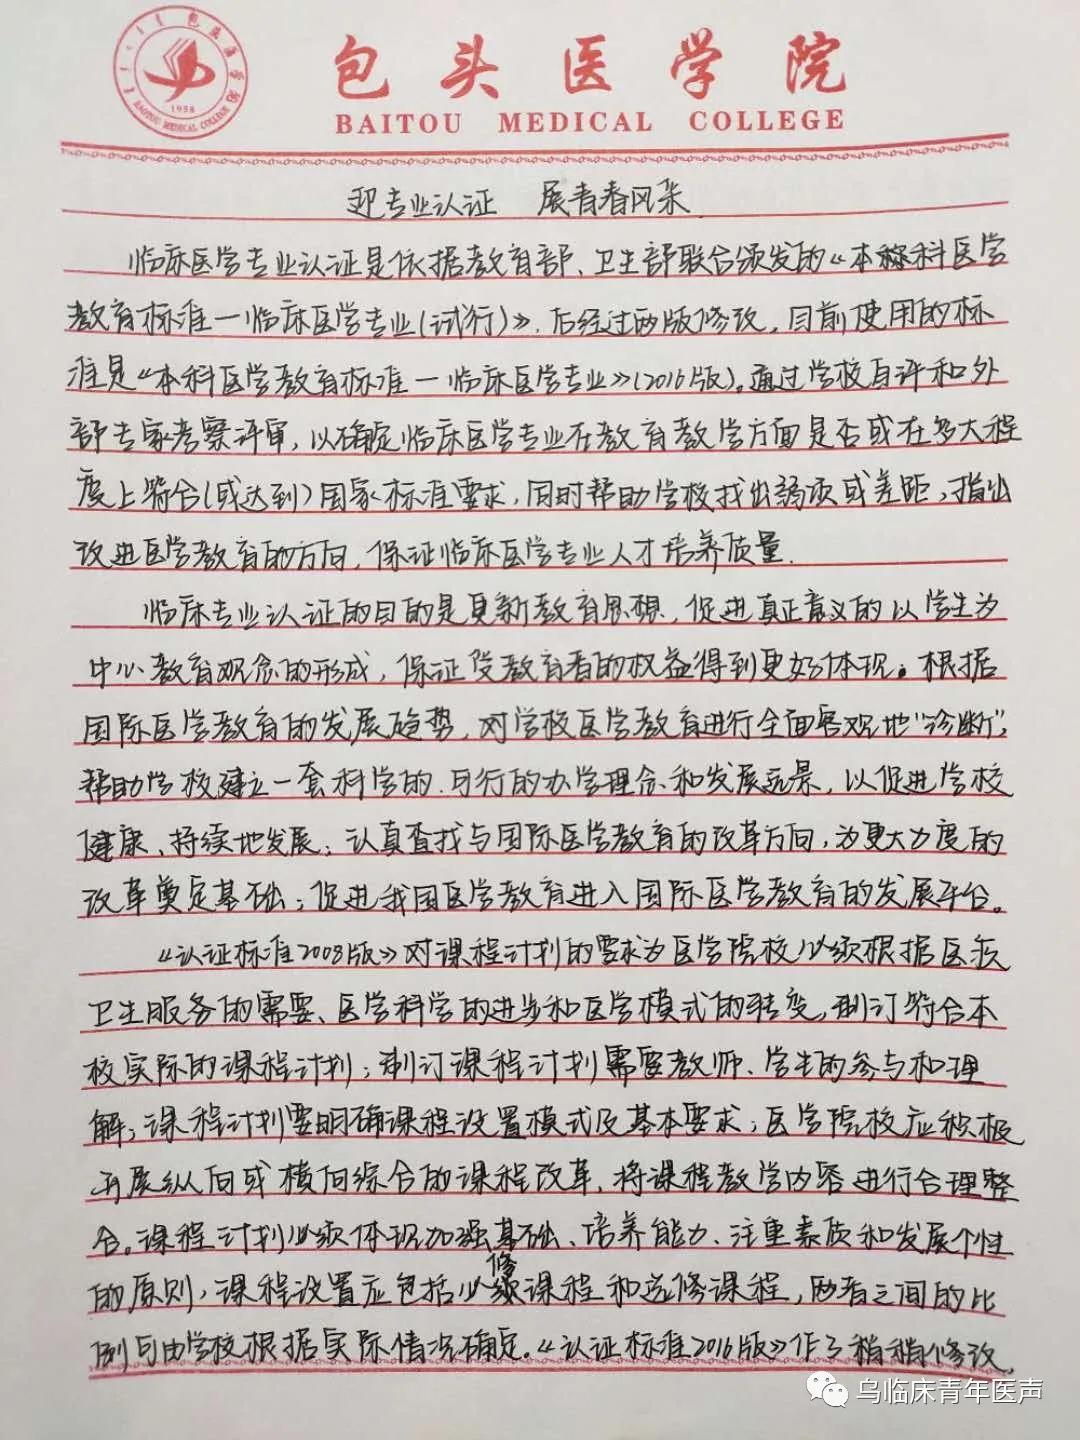 包头医学院
BAITOU MEDICAL COLLEGE
1958
BAOTOU MEDICAL COLLEGE
迎专业认证 展青春风采
临床医学专业认证是依据教育部、卫生部联合颁发的《本科医学
教育标准—临床医学专业(试行)》,后经过两版修改,目前使用的标
准是《本科医学教育标准—临床医学专业》(2016版)。通过学校自评和外
部专家考察评审,以确定临床医学专业在教育教学方面是否或在多大程
度上符合(或达到)国家标准要求,同时帮助学校找出弱项或差距,指出
改进医学教育的方向,保证临床医学专业人才培养质量.
临床专业认证的目的是更新教育思想,促进真正意义的以学生为
中心教育观念的形成,保证受教育者的权益得到更好体现。根据
国际医学教育的发展趋势,对学校医学教育进行全面客观地“诊断”,
帮助学校建立一套科学的.可行的办学理念和发展远景,以促进学校
健康、持续地发展;认真查找与国际医学教育的改革方向,为更大力度的
改革奠定基础;促进我国医学教育进入国际医学教育的发展平台。
《认证标准2008版》对课程计划的要求为医学院校必须根据医疾
卫生服务的需要、医学科学的进步和医学模式的转变,制订符合本
校实际的课程计划;制订课程计划需要教师、学生的参与和理
解;课程计划要明确课程设置模式及基本要求;医学院校应积极
开展纵向或横向综合的课程改革,将课程教学内容进行合理整
合。课程计划必须体现加强基础、培养能力、注重素质和发展个性
的原则,课程设置应包括必修课程和选修课程,两者之间的比
例可由学校根据实际情况确定。《认证标准2016版》作了稍稍修改,
乌临床青年医声